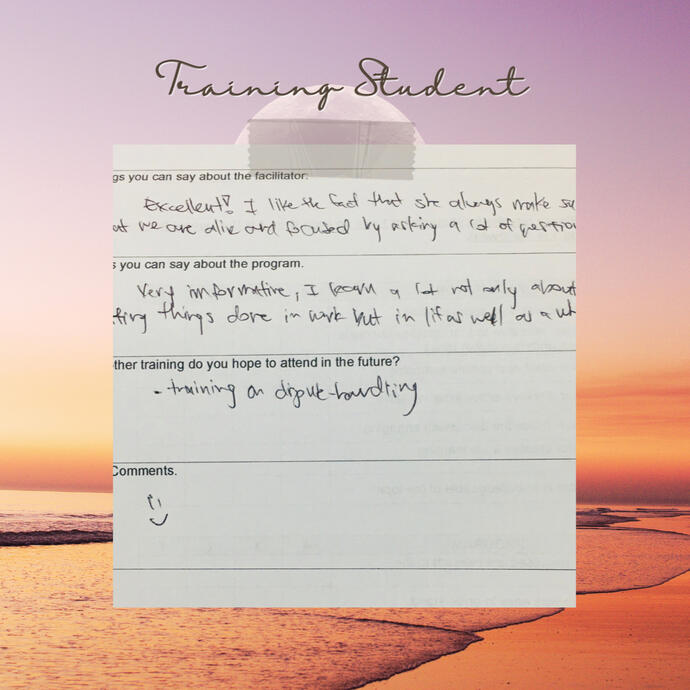 Training Student
gs you can say about the facilitator.
Excellent! I like the fact that she always make su
at we are alive and focused by asking a lot of question
s you can say about the program.
Very informative, I learn a lot not only about
tting things done in work but in life as well as a wh
ther training do you hope to attend in the future?
- training on dispute-handling
Comments.